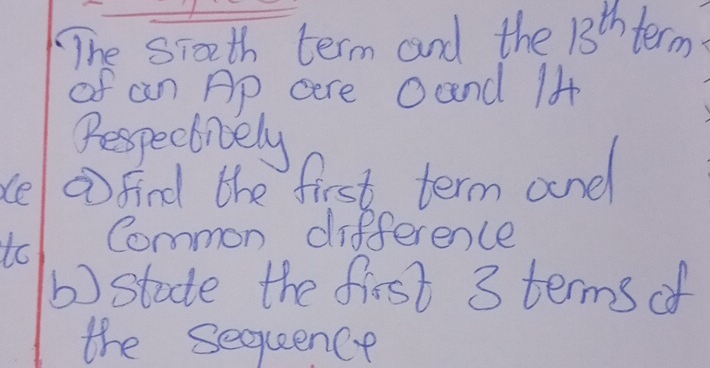 The Sixth term and the 13th term
of an Ap are 0 and 14
Respectively
a) find the first term and
Common difference
b) State the first 3 terms of
the sequence